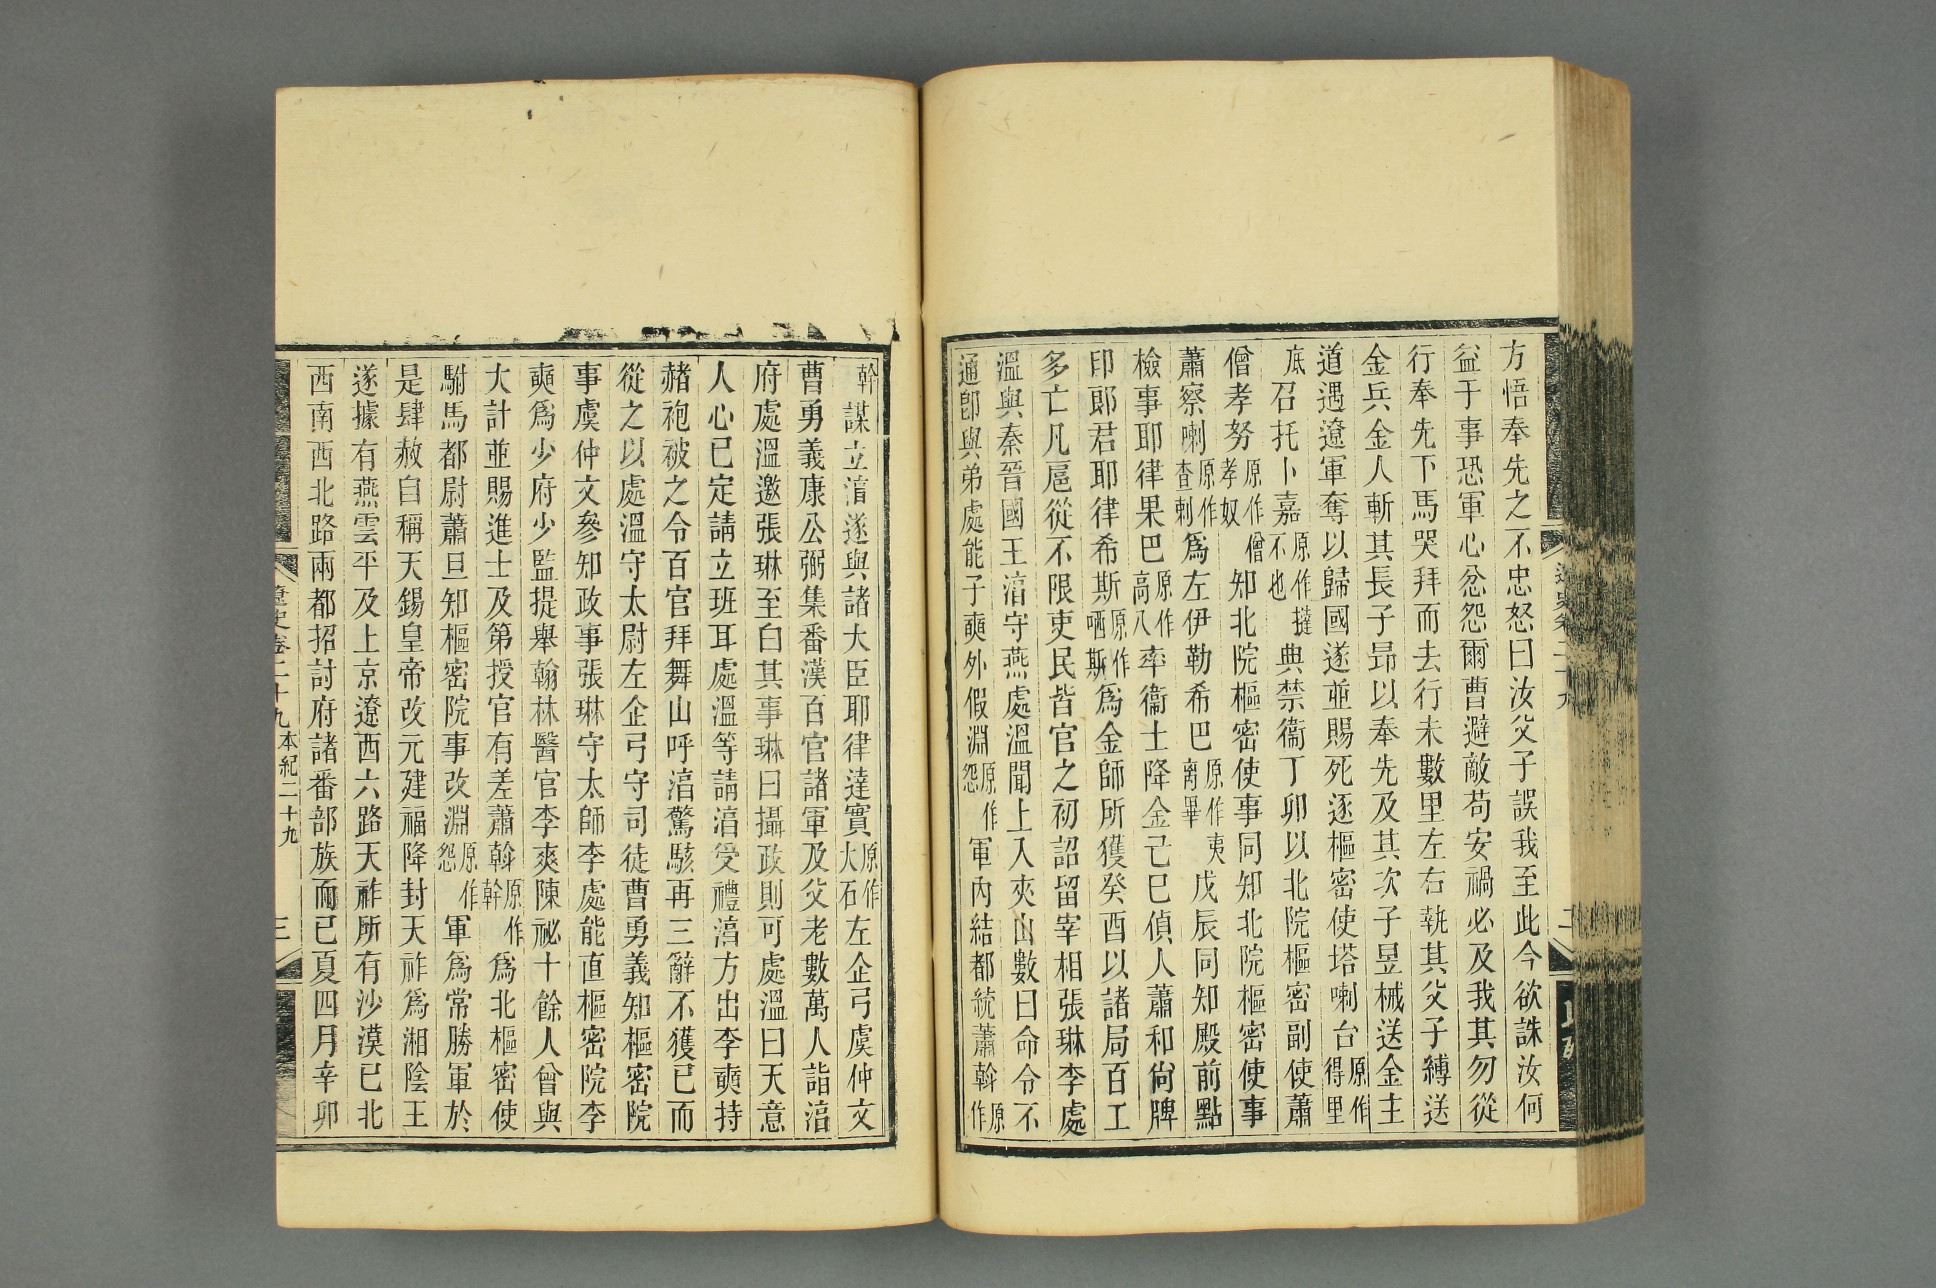 方悟奉先之不忠怒曰汝父子誤我至此今欲誅汝何
益于事恐軍心忿怨爾曹避敵苟安禍必及我其勿從
行奉先下馬哭拜而去行未數里左右執其父子縛送
金兵金人斬其長子昻以奉先及其次子昱械送金主
道遇遼軍奪以歸國遂並賜死逐樞密使塔喇台原作得里
底召托卜嘉原作撻不也典禁衞丁卯以北院樞密副使蕭
僧孝努原作僧孝奴知北院樞密使事同知北院樞密使事
蕭察喇原作查剌爲左伊勒希巴原作夷离畢戊辰同知殿前點
檢事耶律果巴原作高八率衞士降金己巳偵人蕭和尙牌
印郞君耶律希斯原作哂斯爲金師所獲癸酉以諸局百工
多亡凡扈從不限吏民皆官之初詔留宰相張琳李處
溫與秦晉國王湻守燕處溫聞上入夾山數日命令不
通卽與弟處能子奭外假淵原作怨軍內結都統蕭斡原作
幹謀立湻遂與諸大臣耶律達實原作大石左企弓虞仲文
曹勇義康公弼集番漢百官諸軍及父老數萬人詣湻
府處溫邀張琳至白其事琳曰攝政則可處溫曰天意
人心已定請立班耳處溫等請湻受禮湻方出李奭持
赭袍被之令百官拜舞山呼湻驚駭再三辭不獲已而
從之以處溫守太尉左企弓守司徒曹勇義知樞密院
事虞仲文參知政事張琳守太師李處能直樞密院李
奭爲少府少監提舉翰林醫官李爽陳祕十餘人曾與
大計並賜進士及第授官有差蕭斡原作幹爲北樞密使
駙馬都尉蕭旦知樞密院事改淵原作怨軍爲常勝軍於
是肆赦自稱天錫皇帝改元建福降封天祚爲湘陰王
遂據有燕雲平及上京遼西六路天祚所有沙漠已北
西南西北路兩都招討府諸番部族而已夏四月辛卯
遼史卷二十九 本紀二十九 三